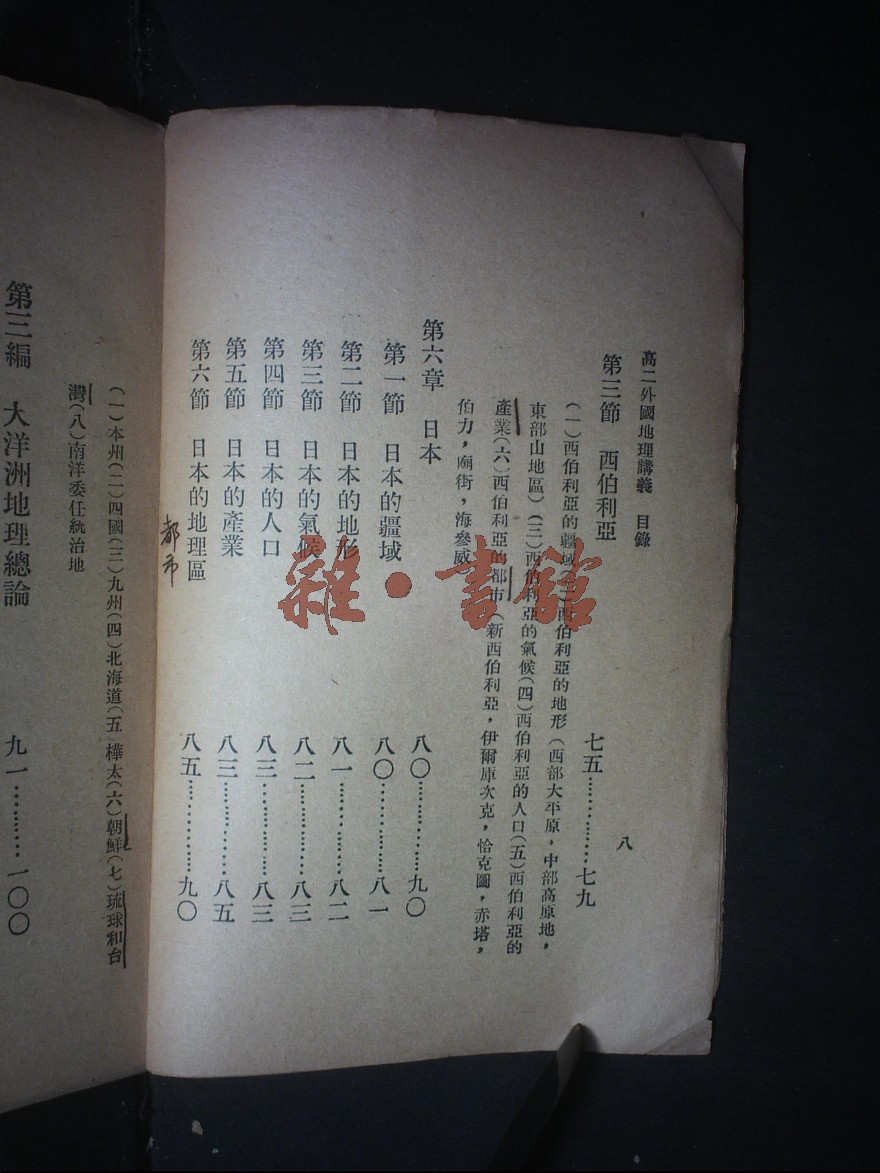 高二外國地理講義 目錄
八
第三節 西伯利亞 七五…………七九
(一)西伯利亞的疆域(二)西伯利亞的地形(西部大平原,中部高原地,
東部山地區)(三)西伯利亞的氣候(四)西伯利亞的人口(五)西伯利亞的
產業(六)西伯利亞的都市(新西伯利亞,伊爾庫次克,恰克圖,赤塔,
伯力,廟街,海參威)
第六章 日本 八〇…………九〇
第一節 日本的疆域 八〇…………八一
第二節 日本的地形 八一…………八二
第三節 日本的氣候 八二…………八三
第四節 日本的人口 八三…………八三
第五節 日本的產業 八三…………八五
第六節 日本的地理區 八五…………九〇
都市
(一)本州(二)四國(三)九州(四)北海道(五 樺太(六)朝鮮(七)琉球和台
灣(八)南洋委任統治地
第三編 大洋洲地理總論 九一…………一〇〇
雜·書館